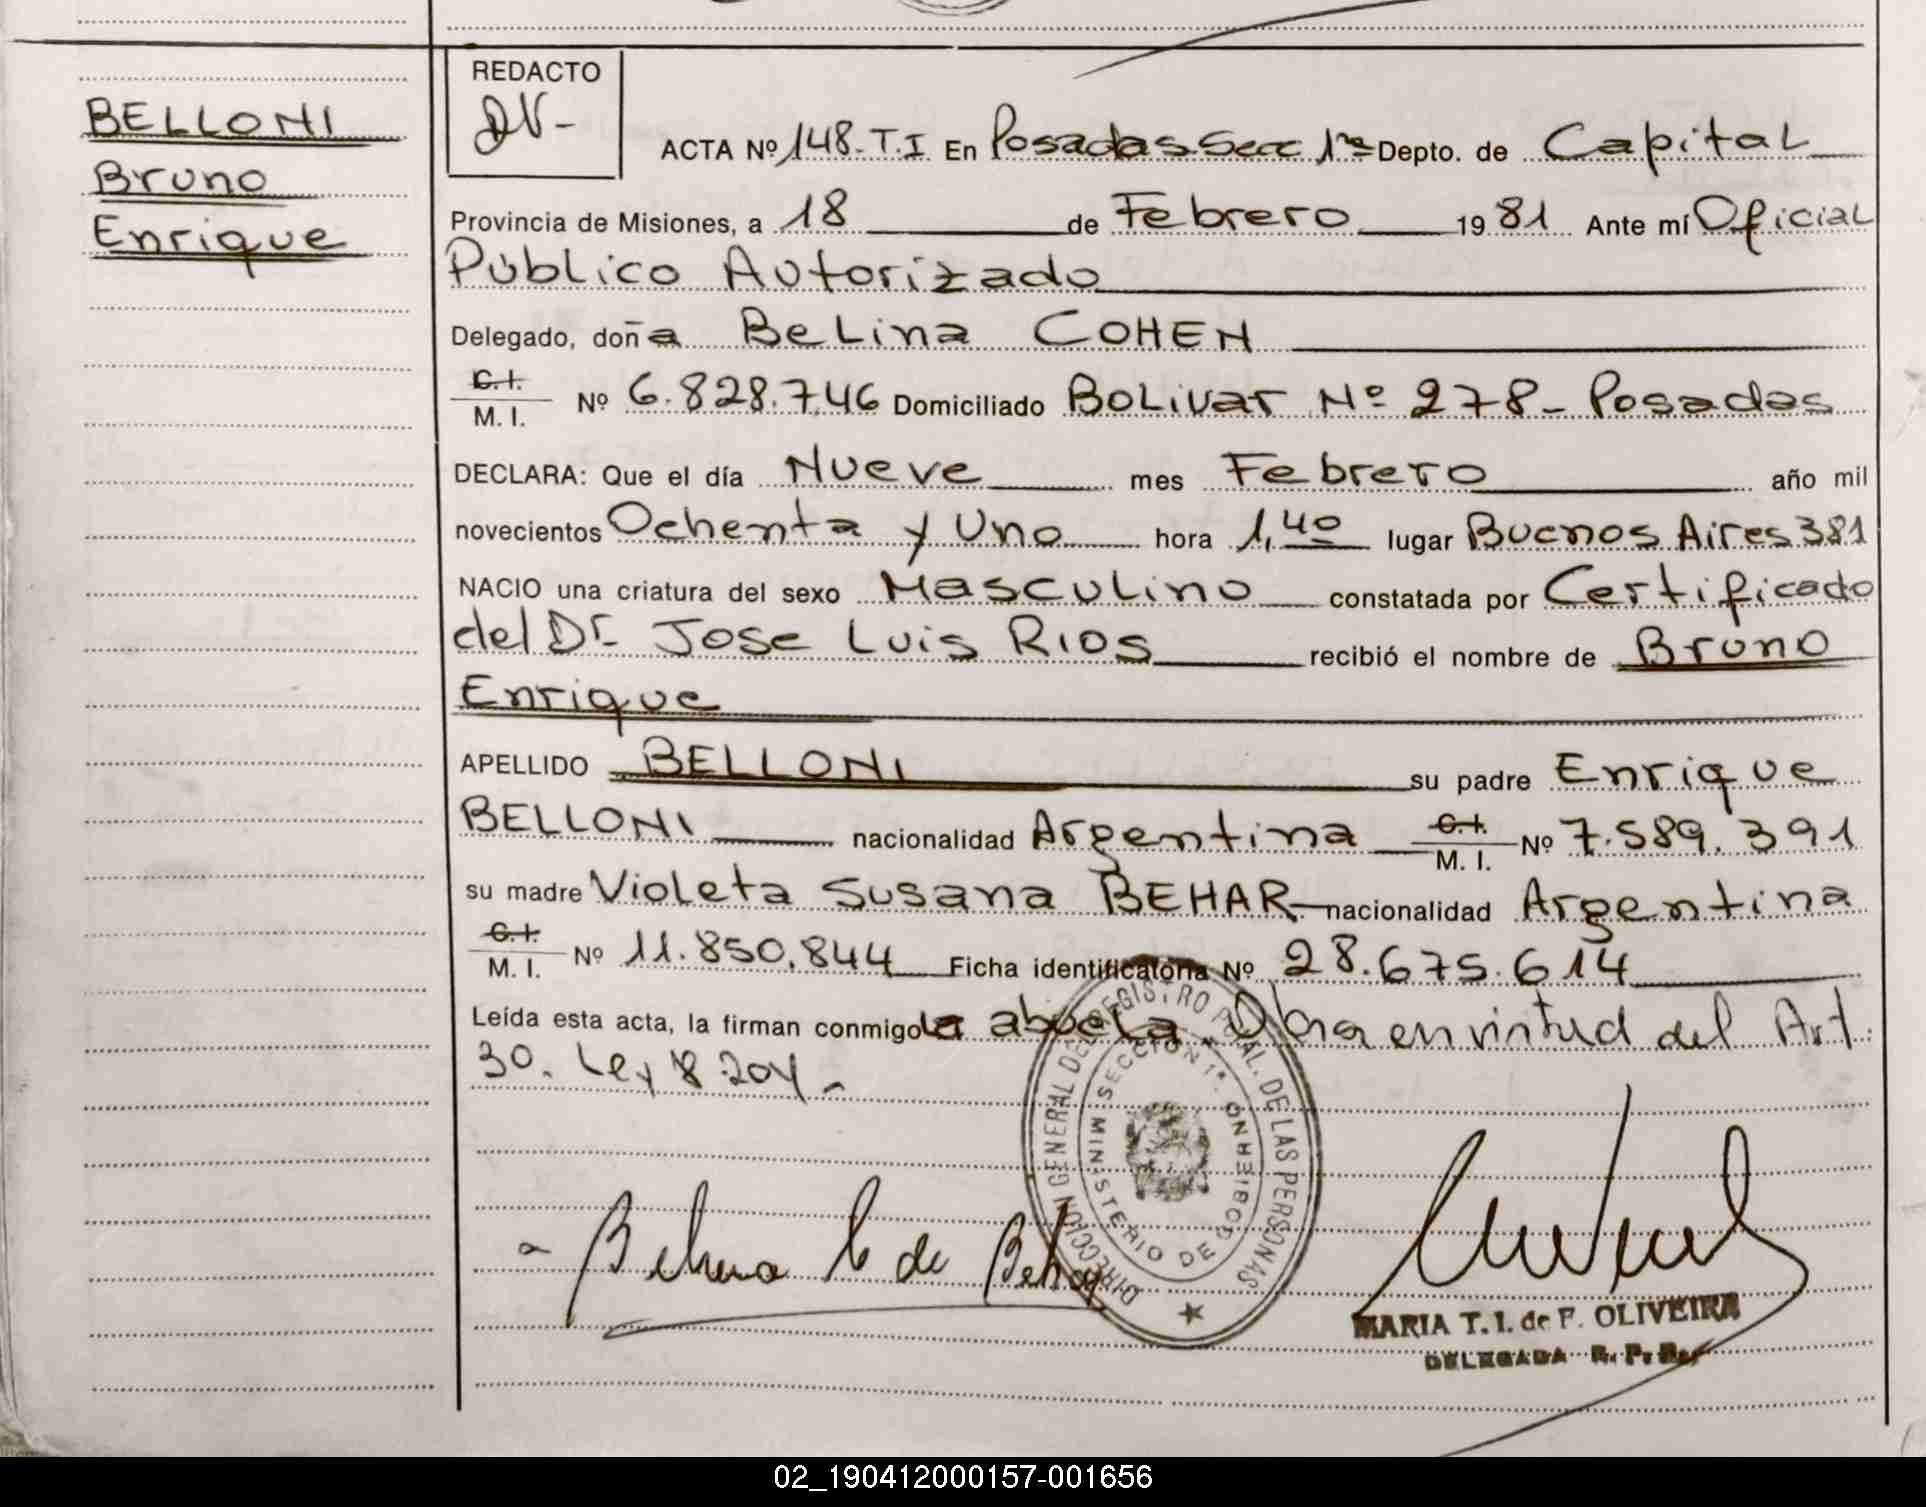 BELLONI
Bruno
Enrique
REDACTO
ACTA Nº 148-T.I En Posadas Secc 1ra Depto. de Capital
Provincia de Misiones, a 18 de Febrero 1981 Ante mí Oficial
Público Autorizado
Delegado, doña Belina COHEN
C.I.
M. I. Nº 6.828.746 Domiciliado Bolivar Nº 278 - Posadas
DECLARA: Que el día Nueve mes Febrero año mil
novecientos Ochenta y Uno hora 1,40 lugar Buenos Aires 381
NACIO una criatura del sexo Masculino constatada por Certificado
del Dr. Jose Luis Rios recibió el nombre de Bruno
Enrique
APELLIDO BELLONI su padre Enrique
BELLONI nacionalidad Argentina C.I.
M. I. Nº 7.589.391
su madre Violeta Susana BEHAR nacionalidad Argentina
C.I.
M. I. Nº 11.850.844 Ficha identificatoria Nº 28.675.614
Leída esta acta, la firman conmigo la abuela en virtud del Art.
30. Ley 8.204.-
DIRECCION GENERAL DEL REGISTRO PCIAL. DE LAS PERSONAS
SECCION 1ª
MINISTERIO DE GOBIERNO
Belina C de Behar
MARIA T. I. de F. OLIVEIRA
DELEGADA R. P. P.
02_190412000157-001656